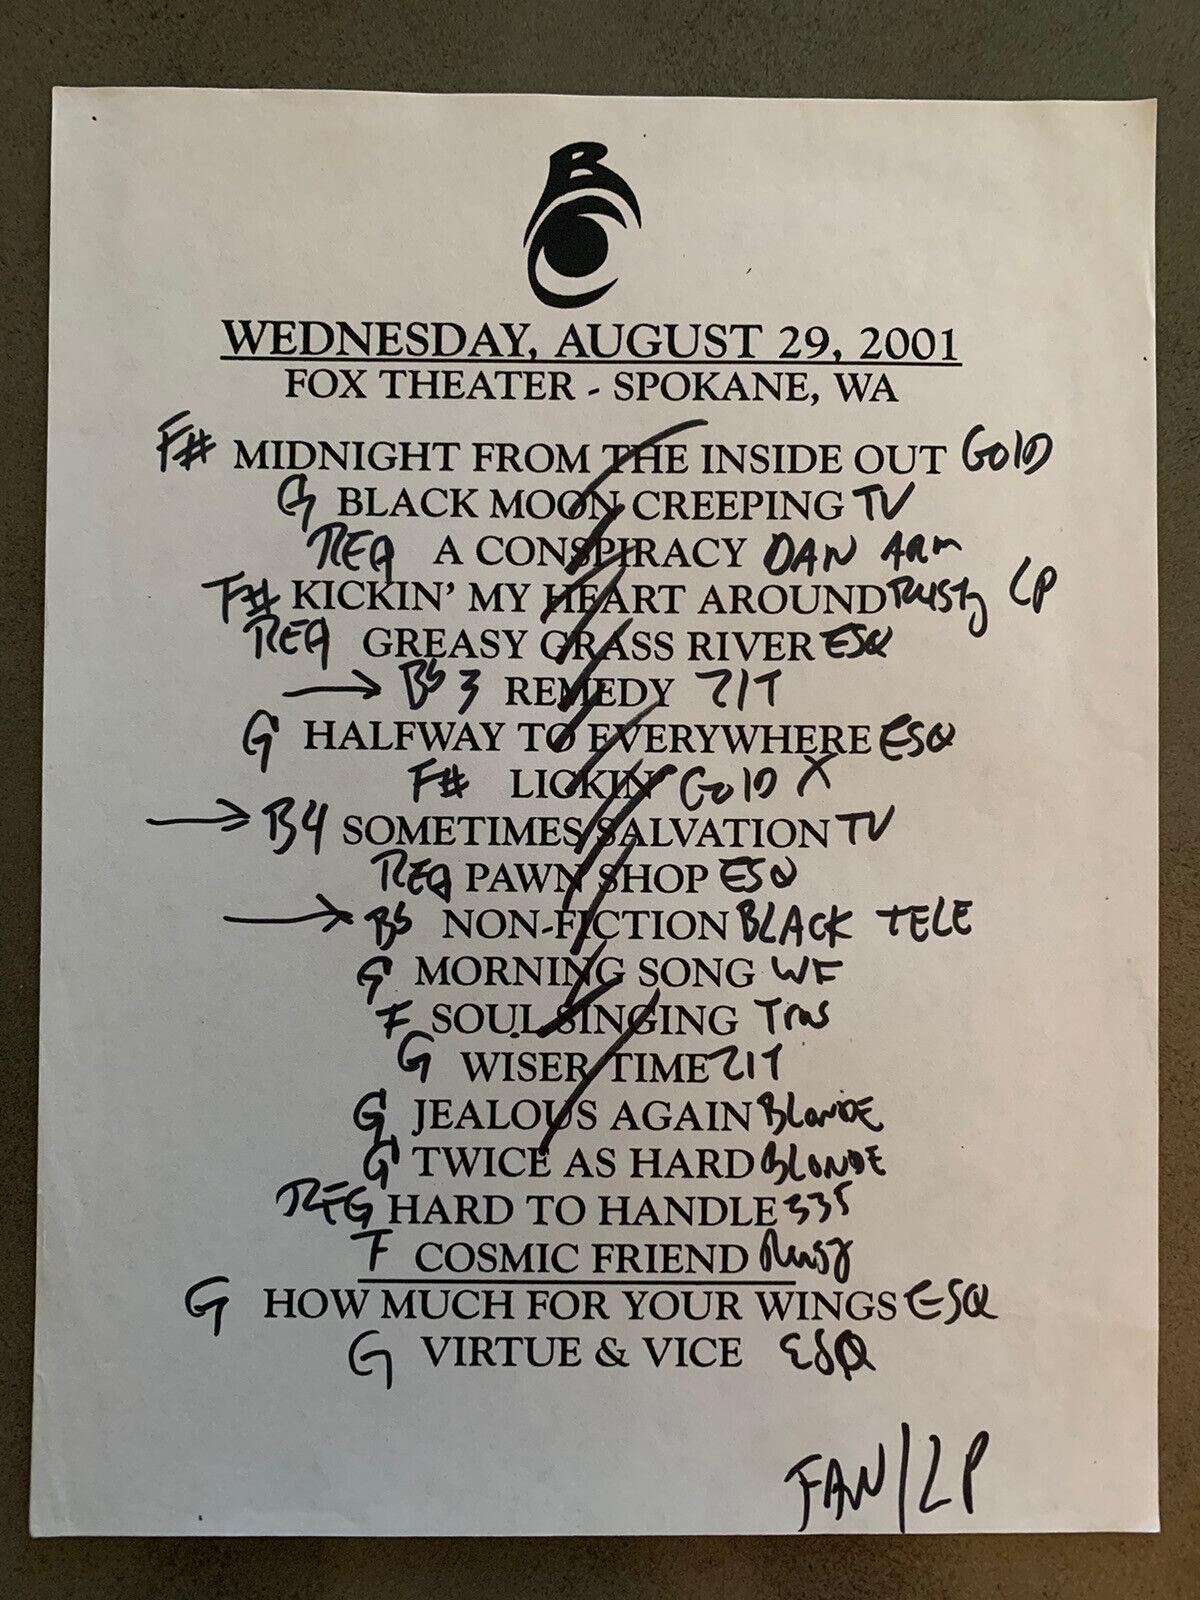 BC
WEDNESDAY, AUGUST 29, 2001
FOX THEATER - SPOKANE, WA
F# MIDNIGHT FROM THE INSIDE OUT GOLD
G BLACK MOON CREEPING TV
REG A CONSPIRACY DAN ARM
F# KICKIN' MY HEART AROUND RUSTY LP
REG GREASY GRASS RIVER ESQ
→ 3 REMEDY ZIT
G HALFWAY TO EVERYWHERE ESQ
F# LICKIN' GOLD X
→ B4 SOMETIMES SALVATION TV
REG PAWN SHOP ESQ
→ NON-FICTION BLACK TELE
G MORNING SONG WF
F SOUL SINGING
G WISER TIME ZIT
G JEALOUS AGAIN BLONDE
G TWICE AS HARD BLONDE
REG HARD TO HANDLE 335
F COSMIC FRIEND
G HOW MUCH FOR YOUR WINGS ESQ
G VIRTUE & VICE ESQ
FAN/LP